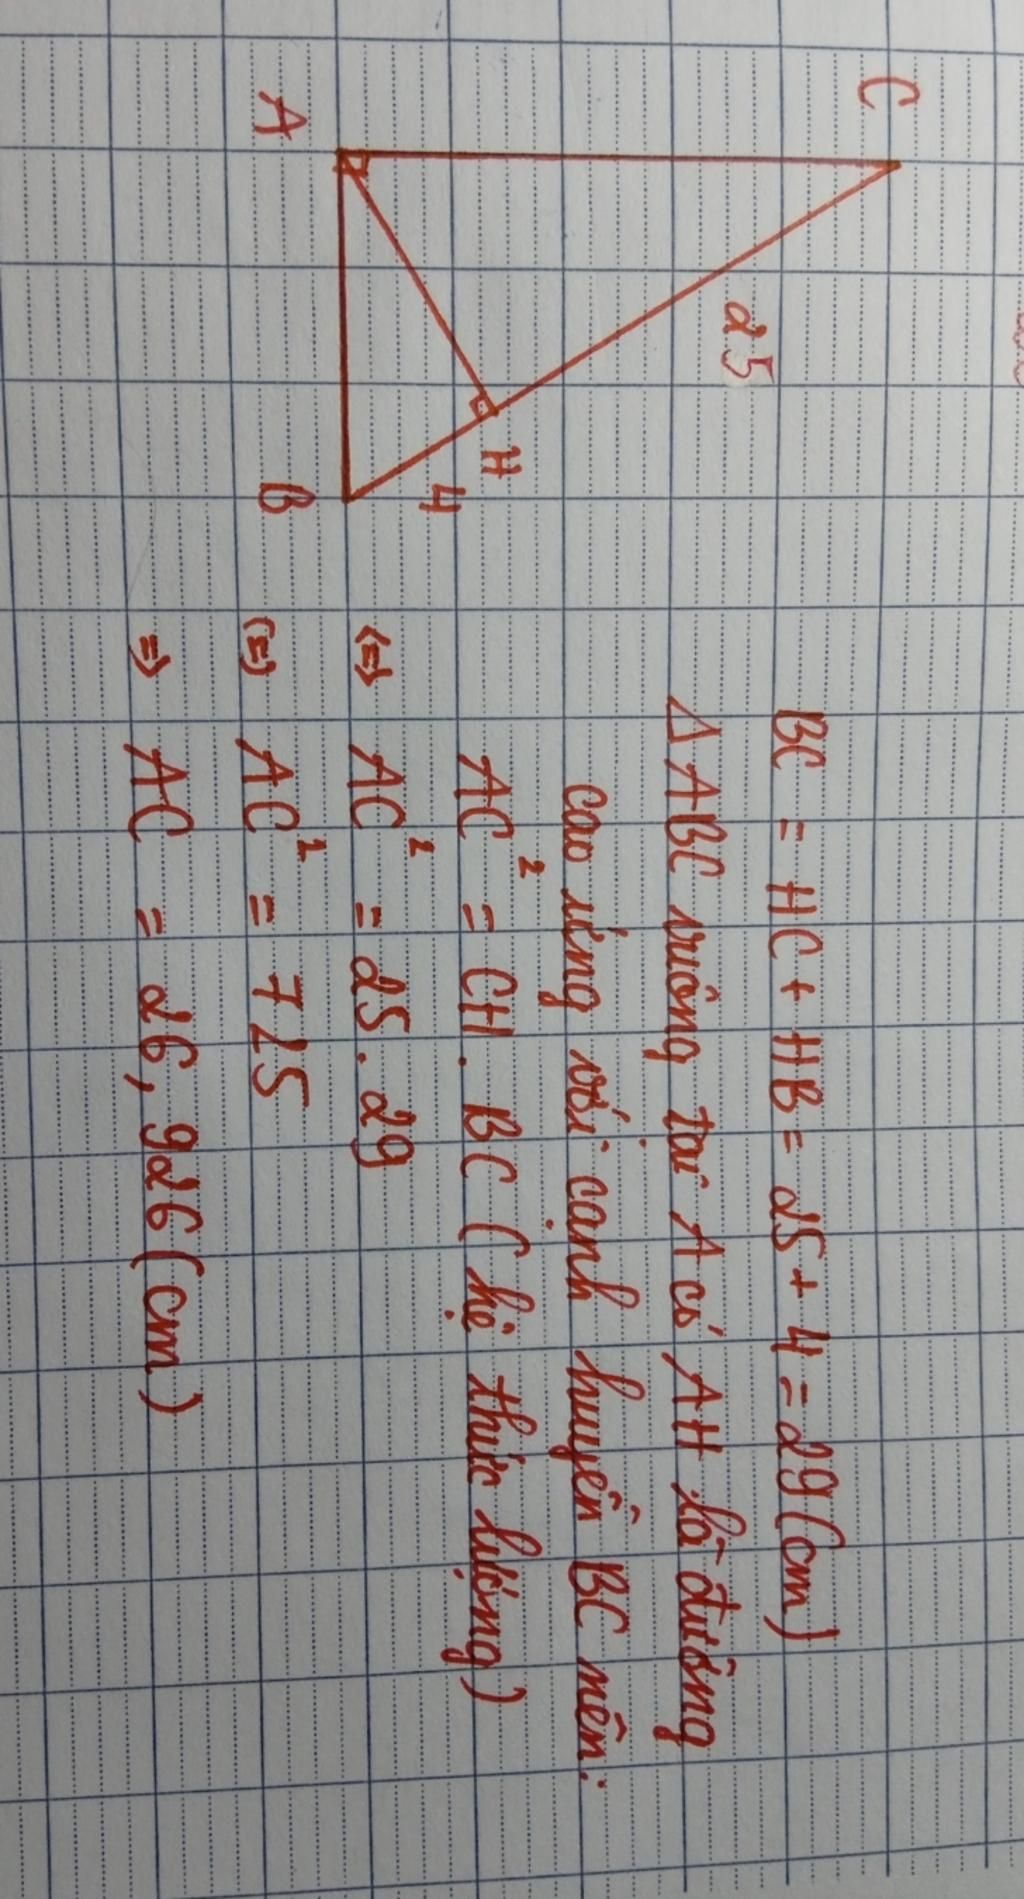 C
25
H
4
A
B
BC = HC + HB = 25 + 4 = 29 (cm)
Δ ABC vuông tại A có AH là đường
cao ứng với cạnh huyền BC nên:
AC² = CH . BC ( hệ thức lượng )
(=) AC² = 25 . 29
(=) AC² = 725
=) AC = 26, 926 (cm)